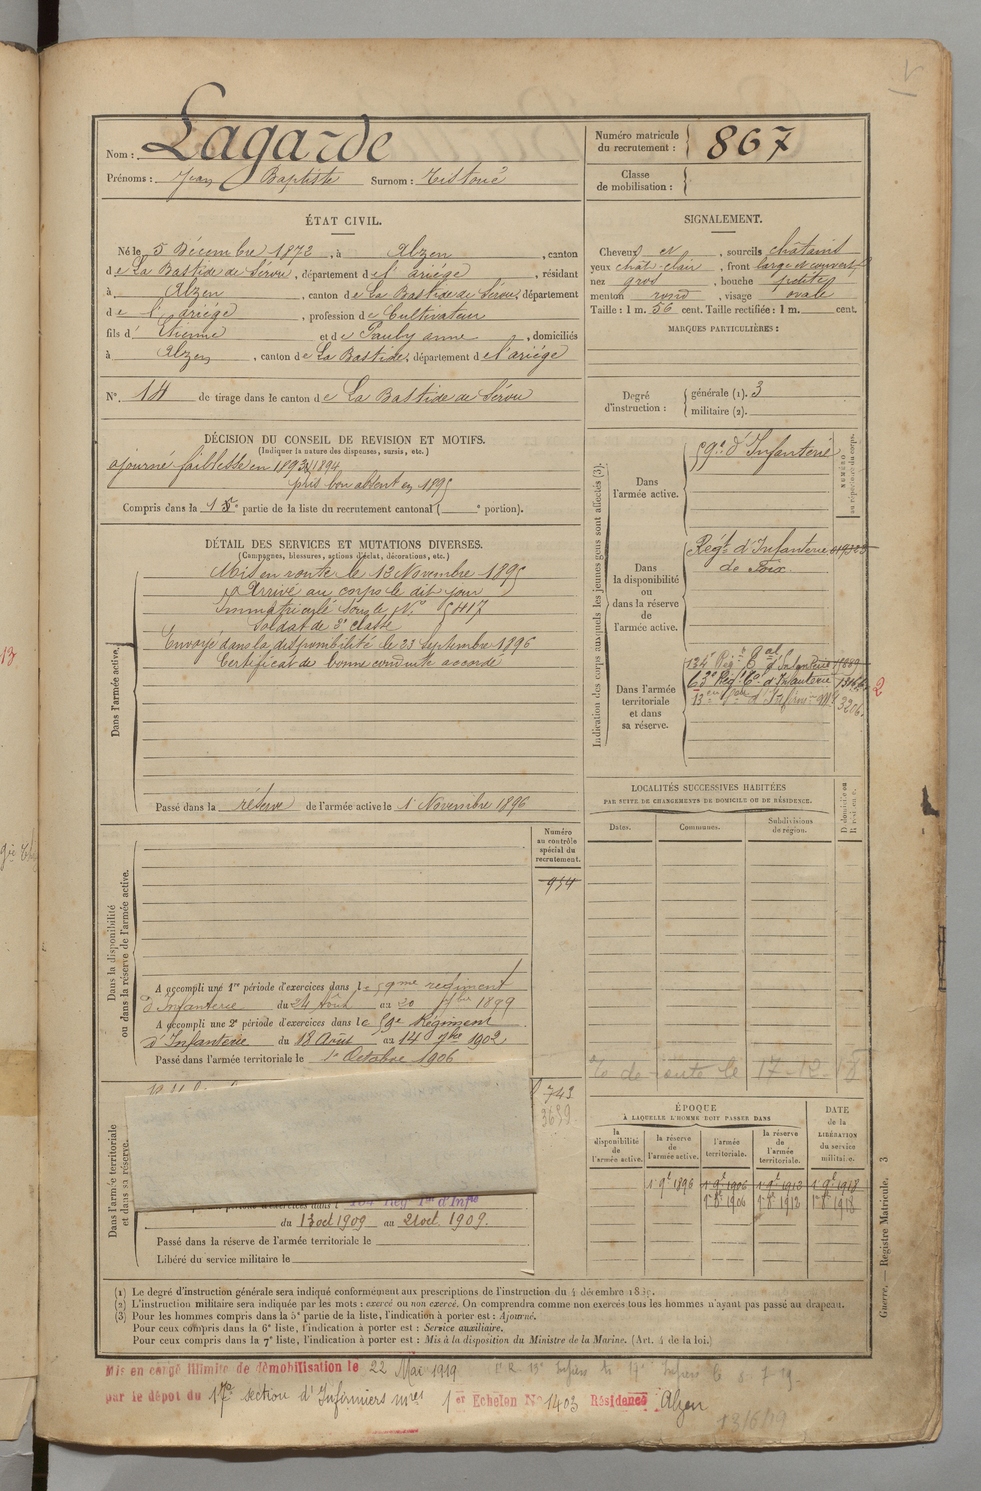 Nom : Lagarde
Prénoms : Jean Baptiste Surnom : Tistoné
Numéro matricule du recrutement : 867
Classe de mobilisation :
ÉTAT CIVIL.
Né le 5 Décembre 1872, à Alzen, canton
de La Bastide de Sérou, département de l'ariége, résidant
à Alzen, canton de La Bastide de Sérou, département
de l'Ariége, profession de Cultivateur
fils d' Etienne et de Pauly anne, domiciliés
à Alzen, canton de La Bastide, département de l'ariége
N°. 14 de tirage dans le canton de La Bastide de Sérou
SIGNALEMENT.
Cheveux et, sourcils châtains
yeux chât-clair, front large et couvert
nez gros, bouche petite
menton rond, visage ovale
Taille : 1 m. 56 cent. Taille rectifiée : 1 m. cent.
MARQUES PARTICULIÈRES :
Degré d'instruction :
générale (1). 3
militaire (2).
DÉCISION DU CONSEIL DE REVISION ET MOTIFS.
(Indiquer la nature des dispenses, sursis, etc.)
ajourné faiblesse en 1893, 1894
pris bon absent en 1895
Compris dans la partie de la liste du recrutement cantonal ( e portion).
DÉTAIL DES SERVICES ET MUTATIONS DIVERSES.
(Campagnes, blessures, actions d'éclat, décorations, etc.)
Dans l'armée active.
Mis en route le 13 Novembre 1895
Arrivé au corps le dit jour
Immatriculé sous le N° 5417
Soldat de 2e classe
Envoyé dans la disponibilité le 23 Septembre 1896
Certificat de bonne conduite accordé
Passé dans la réserve de l'armée active le 1 Novembre 1896
Indication des corps auxquels les jeunes gens sont affectés (3).
NUMÉRO au répertoire du corps.
Dans l'armée active.
59e d'Infanterie
Dans la disponibilité ou dans la réserve de l'armée active.
Régt d'Infanterie
de Foix.
Dans l'armée territoriale et dans sa réserve.
134e Régt Tal d'Infanterie
63e Régt d'Infanterie
3206.
2
LOCALITÉS SUCCESSIVES HABITÉES
PAR SUITE DE CHANGEMENTS DE DOMICILE OU DE RÉSIDENCE.
Dates. Communes. Subdivisions de région. D domicile ou R résidence.
Numéro au contrôle spécial du recrutement.
954
Dans la disponibilité ou dans la réserve de l'armée active.
A accompli une 1re période d'exercices dans le 59me régiment
d'Infanterie du 24 Août au 20 7bre 1899
A accompli une 2e période d'exercices dans le 59e Régiment
d'Infanterie du 18 Août au 14 7bre 1902
Passé dans l'armée territoriale le 1er Octobre 1906
743
3639
Dans l'armée territoriale et dans sa réserve.
du 13 oct 1909 au 21 oct. 1909.
Passé dans la réserve de l'armée territoriale le
Libéré du service militaire le
ÉPOQUE
À LAQUELLE L'HOMME DOIT PASSER DANS
DATE de la LIBÉRATION du service militaire.
la disponibilité de l'armée active. la réserve de l'armée active. l'armée territoriale. la réserve de l'armée territoriale.
1 9e 1896 1 9e 1906 1 9e 1918
1 8e 1906 1 8e 1918
Guerre. — Registre Matricule. 3
(1) Le degré d'instruction générale sera indiqué conformément aux prescriptions de l'instruction du 4 décembre 1889.
(2) L'instruction militaire sera indiquée par les mots : exercé ou non exercé. On comprendra comme non exercés tous les hommes n'ayant pas passé au drapeau.
(3) Pour les hommes compris dans la 5e partie de la liste, l'indication à porter est : Ajourné.
Pour ceux compris dans la 6e liste, l'indication à porter est : Service auxiliaire.
Pour ceux compris dans la 7e liste, l'indication à porter est : Mis à la disposition du Ministre de la Marine. (Art. 4 de la loi.)
Mis en congé illimité de démobilisation le 22 Mai 1919
par le dépôt du 17e section d'Infirmiers mres 1er Echelon N° 1403 Résidence Alzen
13/6/19